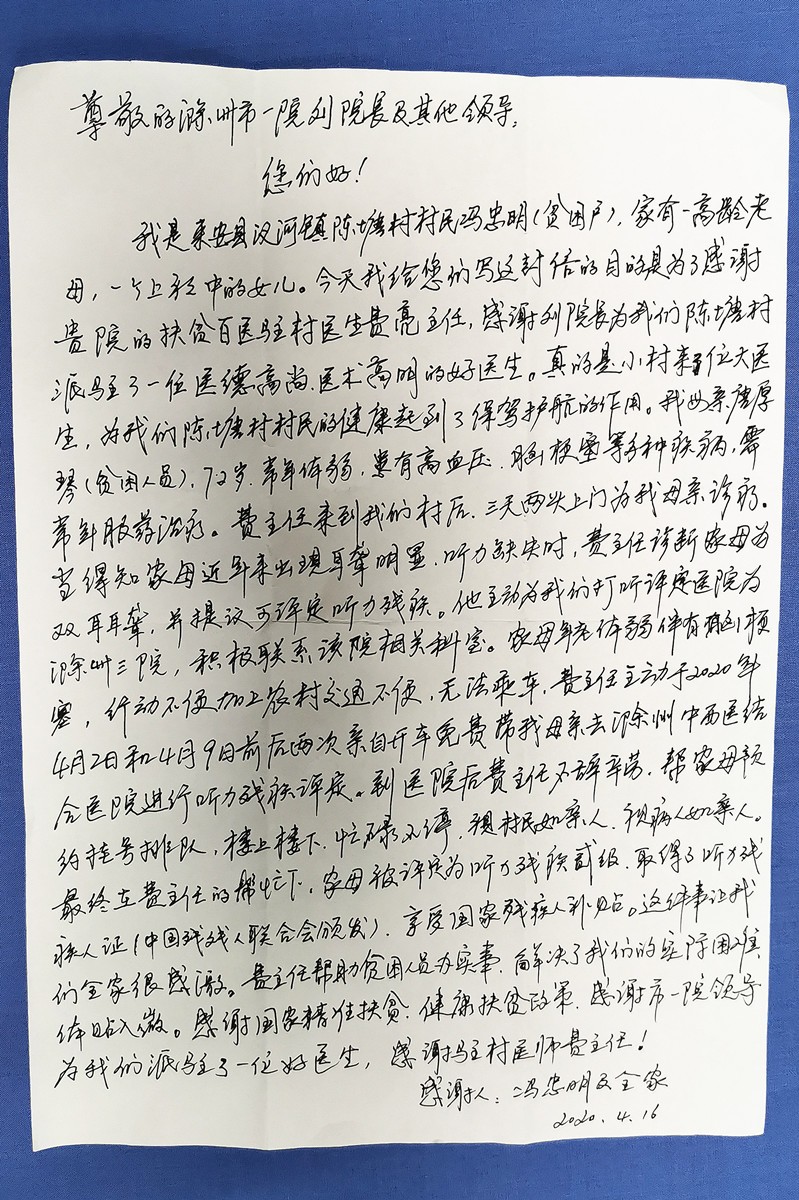 尊敬的滁州市一院刘院长及其他领导:
您们好!
我是来安县汊河镇陈塘村村民冯忠明(贫困户),家有一高龄老
母,一个上初中的女儿。今天我给您们写这封信的目的是为了感谢
贵院的扶贫百医驻村医生费亮主任,感谢刘院长为我们陈塘村
派驻了一位医德高尚、医术高明的好医生。真的是小村来了位大医
生,为我们陈塘村村民的健康起到了保驾护航的作用。我母亲唐厚
琴(贫困人员),72岁,常年体弱,患有高血压、脑梗塞等多种疾病,需
常年服药治疗。费主任来到我们村后、三天两头上门为我母亲诊病。
当得知家母近年来出现耳聋明显、听力缺失时,费主任诊断家母为
双耳耳聋,并提议可评定听力残疾。他主动为我们打听评定医院为
滁州三院,积极联系该院相关科室。家母年老体弱伴有脑梗
塞,行动不便加上农村交通不便,无法乘车,费主任主动于2020年
4月2日和4月9日前后两次亲自开车免费带我母亲去滁州中西医结
合医院进行听力残疾评定。到医院后费主任不辞辛劳,帮家母预
约挂号排队,楼上楼下,忙碌不停,视村民如亲人、视病人如亲人。
最终在费主任的帮忙下,家母被评定为听力残疾贰级,取得了听力残
疾人证(中国残疾人联合会颁发),享受国家残疾人补贴。这件事让我
们全家很感激。费主任帮助贫困人员办实事,解决了我们的实际困难,
体贴入微。感谢国家精准扶贫、健康扶贫政策,感谢市一院领导
为我们派驻了一位好医生,感谢驻村医师费主任!
感谢人:冯忠明及全家
2020.4.16